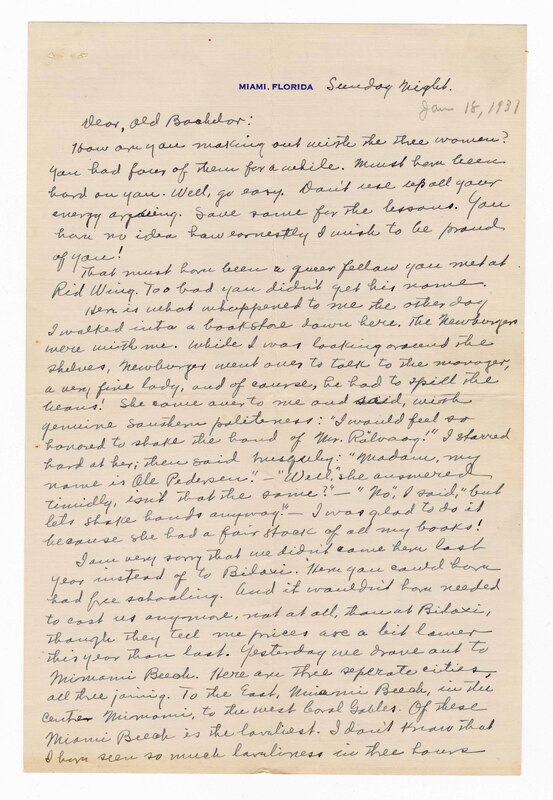 MIAMI, FLORIDA Sunday Night.
Jan 18, 1931
Dear, old Bachelor:
How are you making out with the three women?
You had four of them for a while. Must have been
hard on you. Well, go easy. Don't use up all your
energy argueing. Save some for the lessons. You
have no idea how earnestly I wish to be proud
of you!
That must have been a queer fellow you met at
Rid Wing. Too bad you didn't get his name.
Here is what whappened to me the other day
I walked into a bookstore down here. The Newburgers
were with me. While I was looking around the
shelves, Newburger went over to talk to the manager,
a very fine lady, and of course, he had to spill the
beans! She came over to me and said, with
genuine Southern politeness: "I would feel so
honored to shake the hand of Mr. Rölvaag!" I starred
hard at her; then said brusquely: "Madam, my
name is Ole Pedersen." – "Well," she answered
timidly, isn't that the same?" – "No," I said, "but
lets shake hands anyway." – I was glad to do it
because she had a fair stock of all my books!
I am very sorry that we didn't come here last
year instead of to Biloxi. Here you could have
had free schooling. And it wouldn't have needed
to cost us anymore, not at all, than at Biloxi,
though they tell me prices are a bit lower
this year than last. Yesterday we drove out to
Mimami Beech. Here are three seperate cities,
all three joining. To the East, Miami Beech, in the
center Mimami, to the west Coral Gables. Of these
Miami Beech is the lovliest. I don't know that
I have seen so much lovliness in three hours